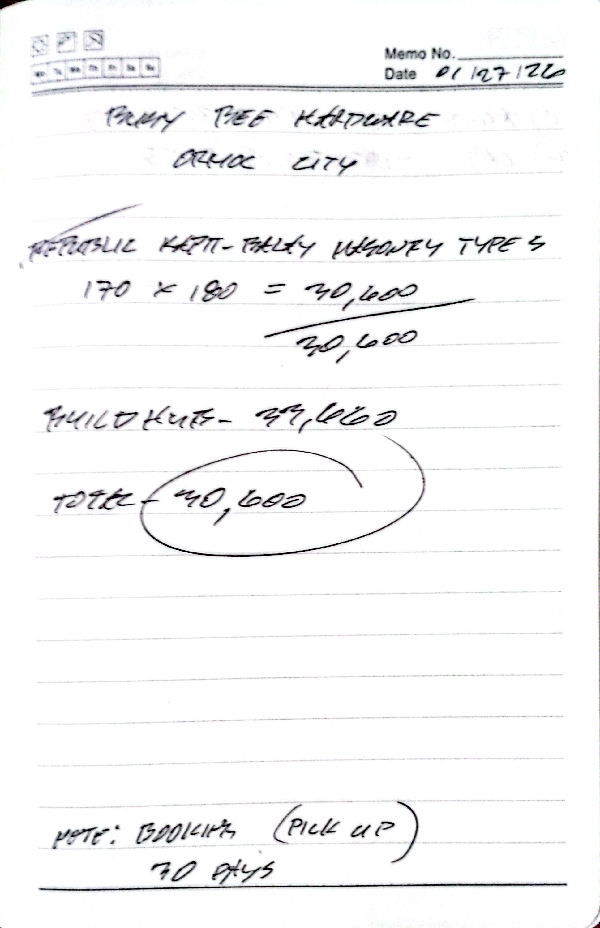 Memo No.
Mo Tu We Th Fr Sa Su
Date 01/27/26
BUSY BEE HARDWARE
ORMOC CITY
REPUBLIC KAPIT-BALAY MASONRY TYPE S
170 x 180 = 30,600
30,600
BUILDHUB - 33,660
TOTAL - 30,600
NOTE: BOOKING (PICK UP)
30 DAYS